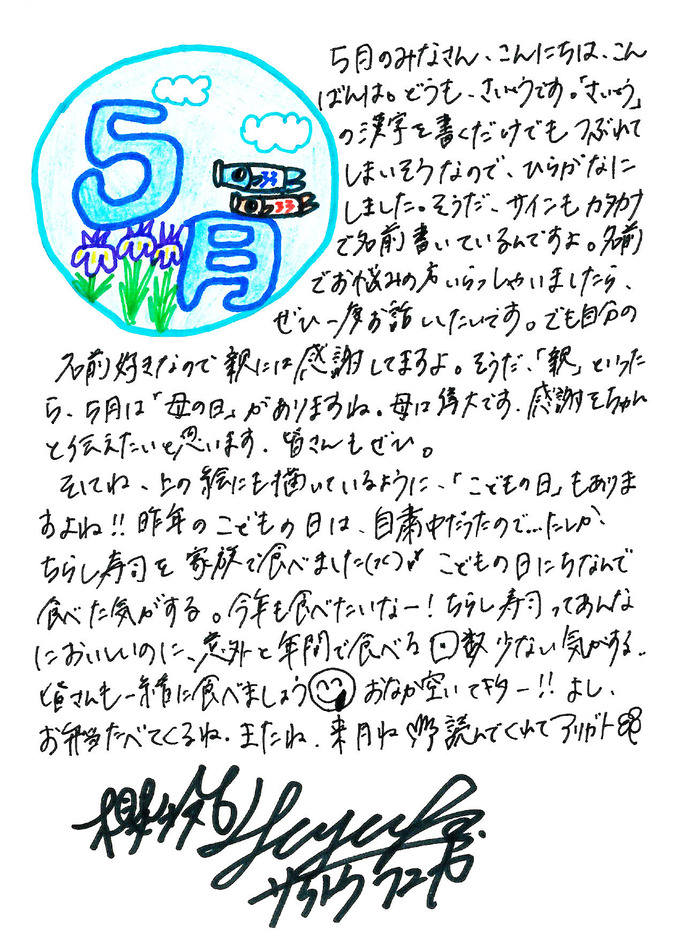 5月
5月のみなさん、こんにちは、こん
ばんは。どうも、さいとうです。「さいとう」
の漢字を書くだけでもつぶれて
しまいそうなので、ひらがなに
しました。そうだ、サインもカタカナ
で名前書いているんですよ。名前
でお悩みの方いらっしゃいましたら、
ぜひ一度お話したいです。でも自分の
名前好きなので親には感謝してますよ。そうだ、「親」といった
ら、5月は「母の日」がありますね。母は偉大です。感謝をちゃん
と伝えたいと思います。皆さんもぜひ。
そしてね、上の絵にも描いているように、「こどもの日」もありま
すよね!!昨年のこどもの日は、自粛中だったので…たしか、
ちらし寿司を家族で食べました こどもの日にちなんで
食べた気がする。今年も食べたいなー!ちらし寿司ってあんな
においしいのに、意外と年間で食べる回数少ない気がする。
皆さんも一緒に食べましょう おなか空いてキター!!よし、
お弁当たべてくるね。またね。来月ね 読んでくれてアリガト
櫻坂46
サイトウフユカ